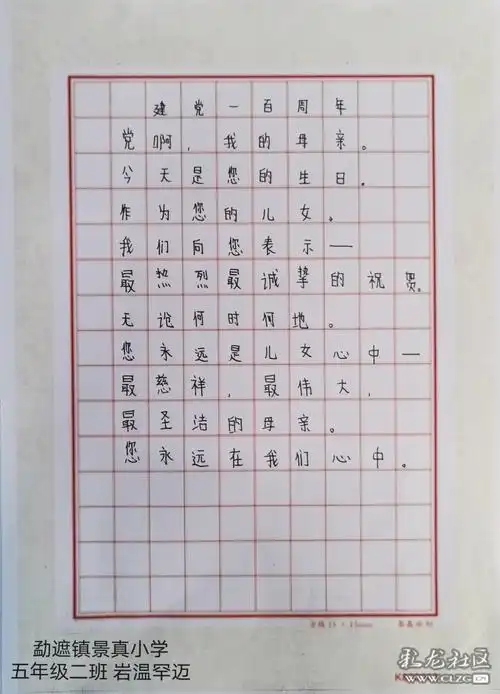 建党一百周年
党啊，我的母亲。
今天是您的生日。
作为您的儿女。
我们向您表示——
最热烈最诚挚的祝贺。
无论何时何地。
您永远是儿女心中——
最慈祥，最伟大，
最圣洁的母亲。
您永远在我们心中。
方格15×15mm
勐遮镇景真小学
五年级二班 岩温罕迈
彩龙社区
WWW.CLZG.CN